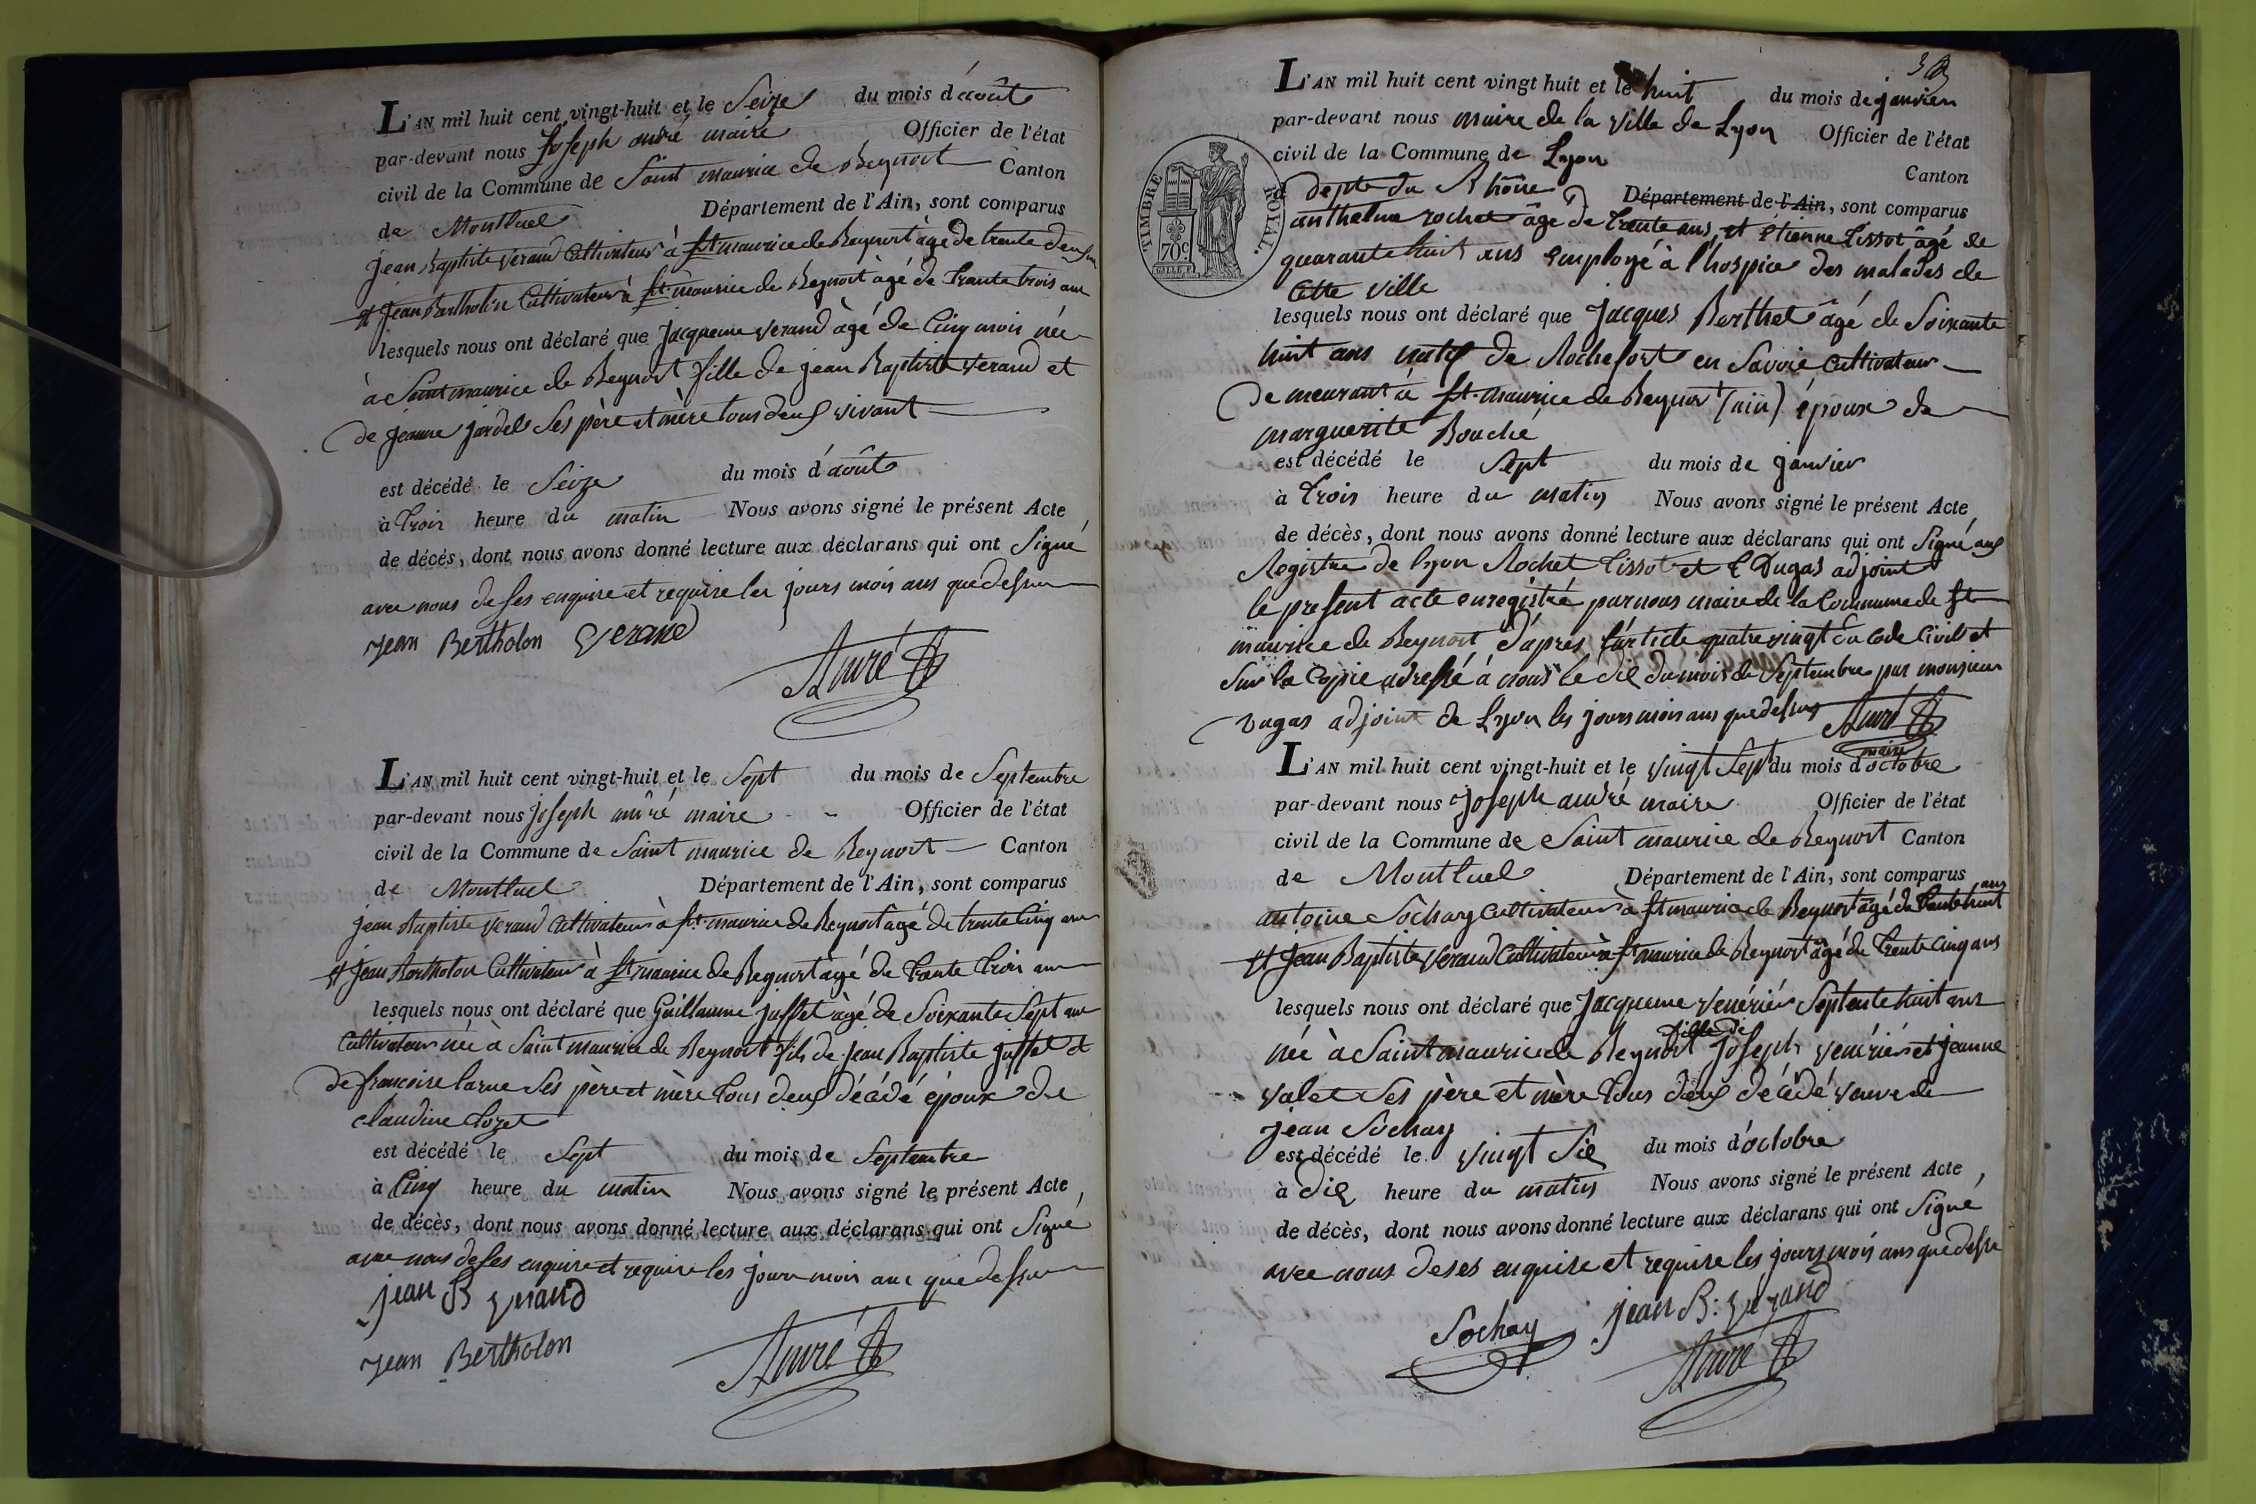 L'AN mil huit cent vingt-huit et le Seize du mois d'août
par-devant nous Joseph André maire Officier de l'état
civil de la Commune de Saint maurice de Beynost Canton
de Montluel Département de l'Ain, sont comparus
jean Baptiste Verand Cultivateur à St maurice de Beynost âgé de trente deux
et Jean Bertholon Cultivateur à St maurice de Beynost âgé de Trente trois ans
lesquels nous ont déclaré que Jacqueme Verand âgé de Cinq mois née
à Saint maurice de Beynost fille de jean Baptiste Verand et
de jeanne jardel Ses père et mère tous deux vivant
est décédé le Seize du mois d'août
à Trois heure du matin Nous avons signé le présent Acte
de décès, dont nous avons donné lecture aux déclarans qui ont Signé
avec nous de ses enquire et require les jours mois ans que dessus
jean Bertholon Verand
André
L'AN mil huit cent vingt-huit et le Sept du mois de Septembre
par-devant nous Joseph André maire Officier de l'état
civil de la Commune de Saint maurice de Beynost Canton
de Montluel Département de l'Ain, sont comparus
jean Baptiste Verand Cultivateur à St maurice de Beynost âgé de trente Cinq ans
et Jean Bertholon Cultivateur à St maurice de Beynost âgé de Trente Trois ans
lesquels nous ont déclaré que Guillaume juffet âgé de Soixante Sept ans
Cultivateur née à Saint maurice de Beynost fils de jean Baptiste juffet et
de francoise larue Ses père et mère Tous deux décédé époux de
claudine
est décédé le Sept du mois de Septembre
à Cinq heure du matin Nous avons signé le présent Acte
de décès, dont nous avons donné lecture aux déclarans qui ont Signé
avec nous de ses enquire et require les jours mois ans que dessus
jean B verand
jean Bertholon
André
L'AN mil huit cent vingt huit et le huit du mois de janvier
par-devant nous maire de la ville de Lyon Officier de l'état
civil de la Commune de Lyon Canton
depte du Rhône Département de l'Ain, sont comparus
anthelme rochet âgé de Trente ans et étienne Tissot âgé de
quarante huit ans Employé à l'hospice des malades de
Cette ville
lesquels nous ont déclaré que Jacques Berthet âgé de Soixante
huit ans natif de Rochefort en Savoie Cultivateur
demeurant à St maurice de Beynost (ain) époux de
marguerite Bouché
est décédé le Sept du mois de janvier
à Trois heure du matin Nous avons signé le présent Acte
de décès, dont nous avons donné lecture aux déclarans qui ont Signé aux
Registre de lyon Rochet Tissot et E Dugas adjoint
le present acte enregistré par nous maire de la Commune de St
maurice de Beynost d'après l'article quatre vingt du code Civil et
Sur la Copie adressé à nous le dix du mois de Septembre par monsieur
Dugas adjoint de Lyon les jours mois ans que dessus André
maire
TIMBRE ROYAL.
70c.
L'AN mil huit cent vingt-huit et le vingt Sept du mois d'octobre
par-devant nous Joseph André maire Officier de l'état
civil de la Commune de Saint maurice de Beynost Canton
de Montluel Département de l'Ain, sont comparus
antoine Sochay Cultivateur à St maurice de Beynost âgé de trente huit ans
et Jean Baptiste Verand Cultivateur à St maurice de Beynost âgé de Trente Cinq ans
lesquels nous ont déclaré que Jacqueme Venérier Septente huit ans
née à Saint maurice de Beynost fille de Joseph venérier et jeanne
valet Ses père et mère Tous deux décédé veuve de
jean Sochay
est décédé le vingt Six du mois d'octobre
à Dix heure du matin Nous avons signé le présent Acte
de décès, dont nous avons donné lecture aux déclarans qui ont Signé
avec nous de ses enquise et requise les jours mois ans que dessus
Sochay jean B. Verand
André